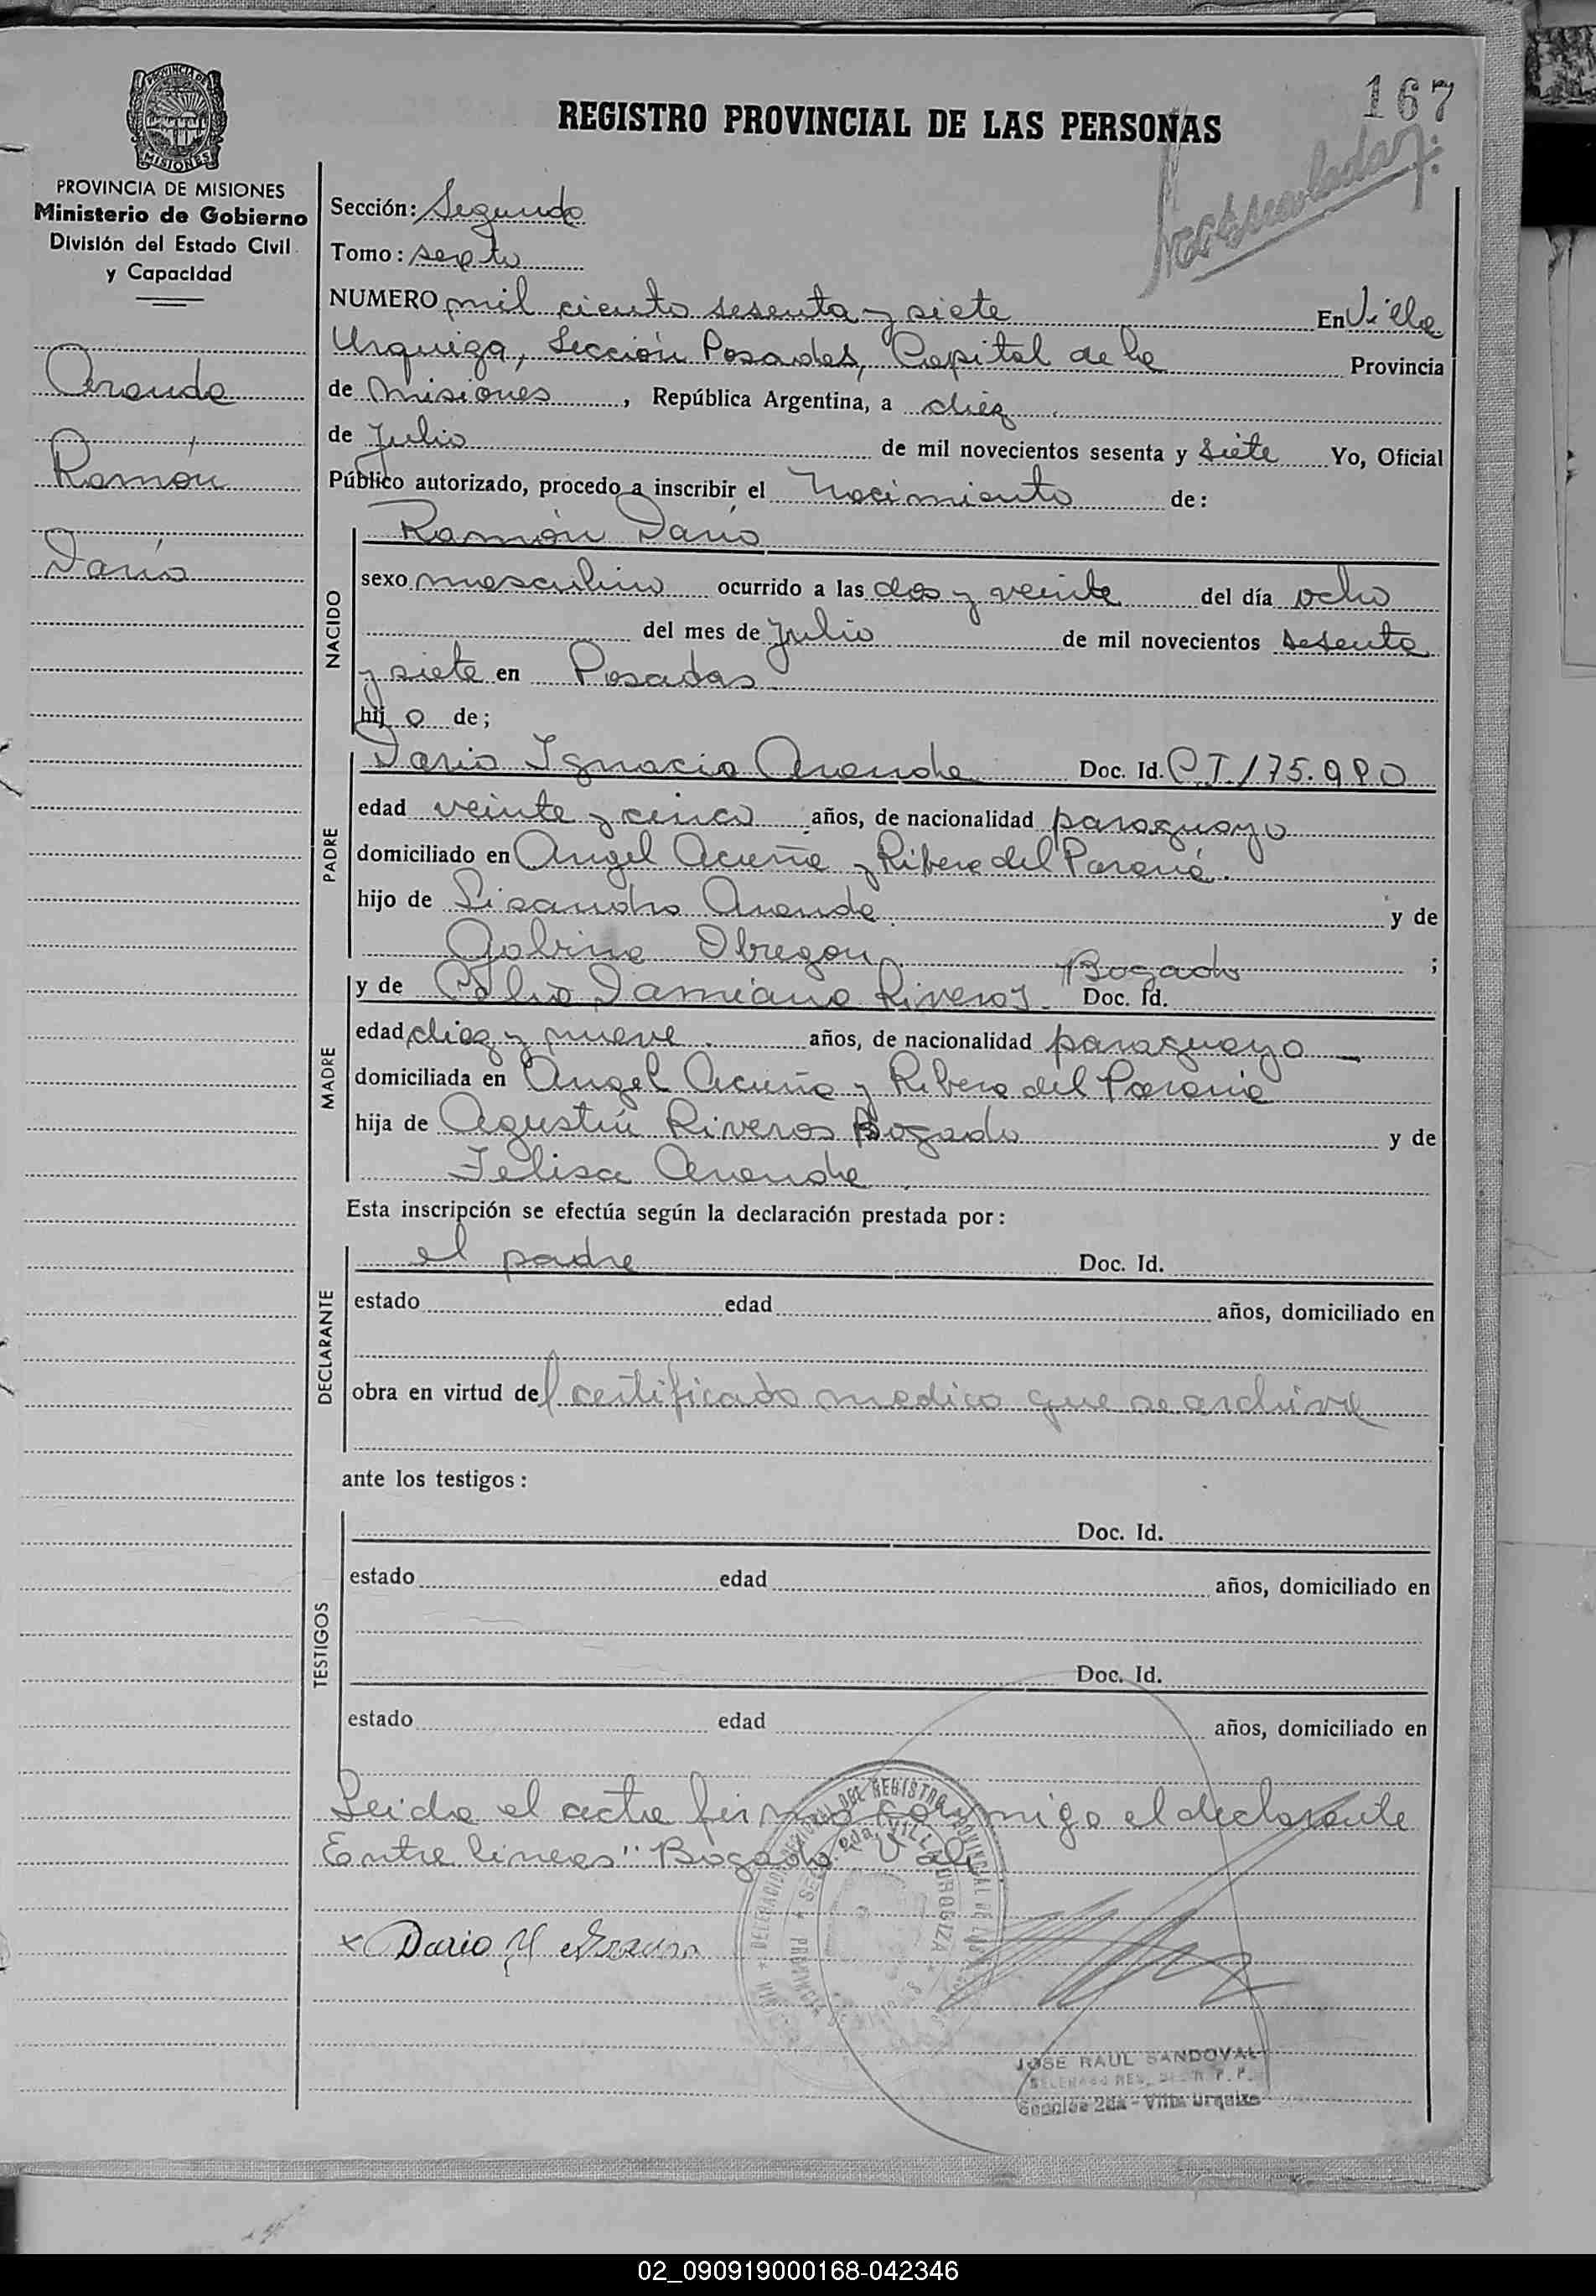 167
REGISTRO PROVINCIAL DE LAS PERSONAS
PROVINCIA DE
MISIONES
PROVINCIA DE MISIONES
Ministerio de Gobierno
División del Estado Civil
y Capacidad
Aranda
Ramón
Darío
Sección: Segunda
Tomo: sexto
NUMERO mil ciento sesenta y siete En Villa
Urquiza, Sección Posadas, Capital de la Provincia
de Misiones, República Argentina, a diez
de Julio de mil novecientos sesenta y siete Yo, Oficial
Público autorizado, procedo a inscribir el Nacimiento de:
NACIDO
Ramón Darío
sexo masculino ocurrido a las dos y veinte del día ocho
del mes de Julio de mil novecientos sesenta
y siete en Posadas
hijo de;
PADRE
Dario Ignacio Aranda Doc. Id. C.I. 175.980
edad veinte y cinco años, de nacionalidad paraguayo
domiciliado en Angel Acuña y Ribera del Paraná.
hijo de Lisandro Aranda y de
Gabina Obregon ;
Bogado
MADRE
y de Damiana Riveros Doc. Id.
edad diez y nueve años, de nacionalidad paraguaya
domiciliada en Angel Acuña y Ribera del Paraná
hija de Agustín Riveros Bogado y de
Felisa Aranda
Esta inscripción se efectúa según la declaración prestada por:
DECLARANTE
el padre Doc. Id.
estado edad años, domiciliado en
obra en virtud del certificado medico que se archiva
ante los testigos:
TESTIGOS
Doc. Id.
estado edad años, domiciliado en
Doc. Id.
estado edad años, domiciliado en
Leida el acta firma conmigo el declarante
Entre lineas "Bogado" Vale
x Dario Y
JOSE RAUL SANDOVAL
Sección 2da - Villa Urquiza
02_090919000168-042346